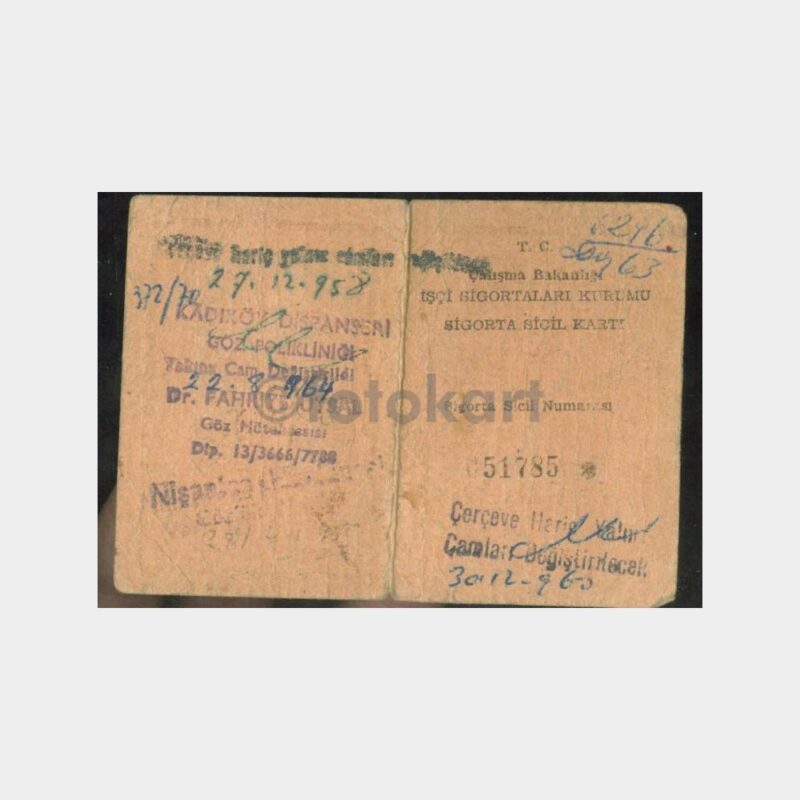 hariç yalnız camları
27.12.958
372/70
KADIKÖY DİSPANSERİ
GÖZ POLİKLİNİĞİ
Yalnız Cam Değiştirildi
22.8.964
Dr. FAHRİYE
Göz Mütehassısı
Dip. 13/3666/7788
©fotokart
T. C.
63
Çalışma Bakanlığı
İŞÇİ SİGORTALARI KURUMU
SİGORTA SİCİL KARTI
Sigorta Sicil Numarası
51785
Çerçeve Hariç Yalnız
Camları Değiştirilecek
30.12.960